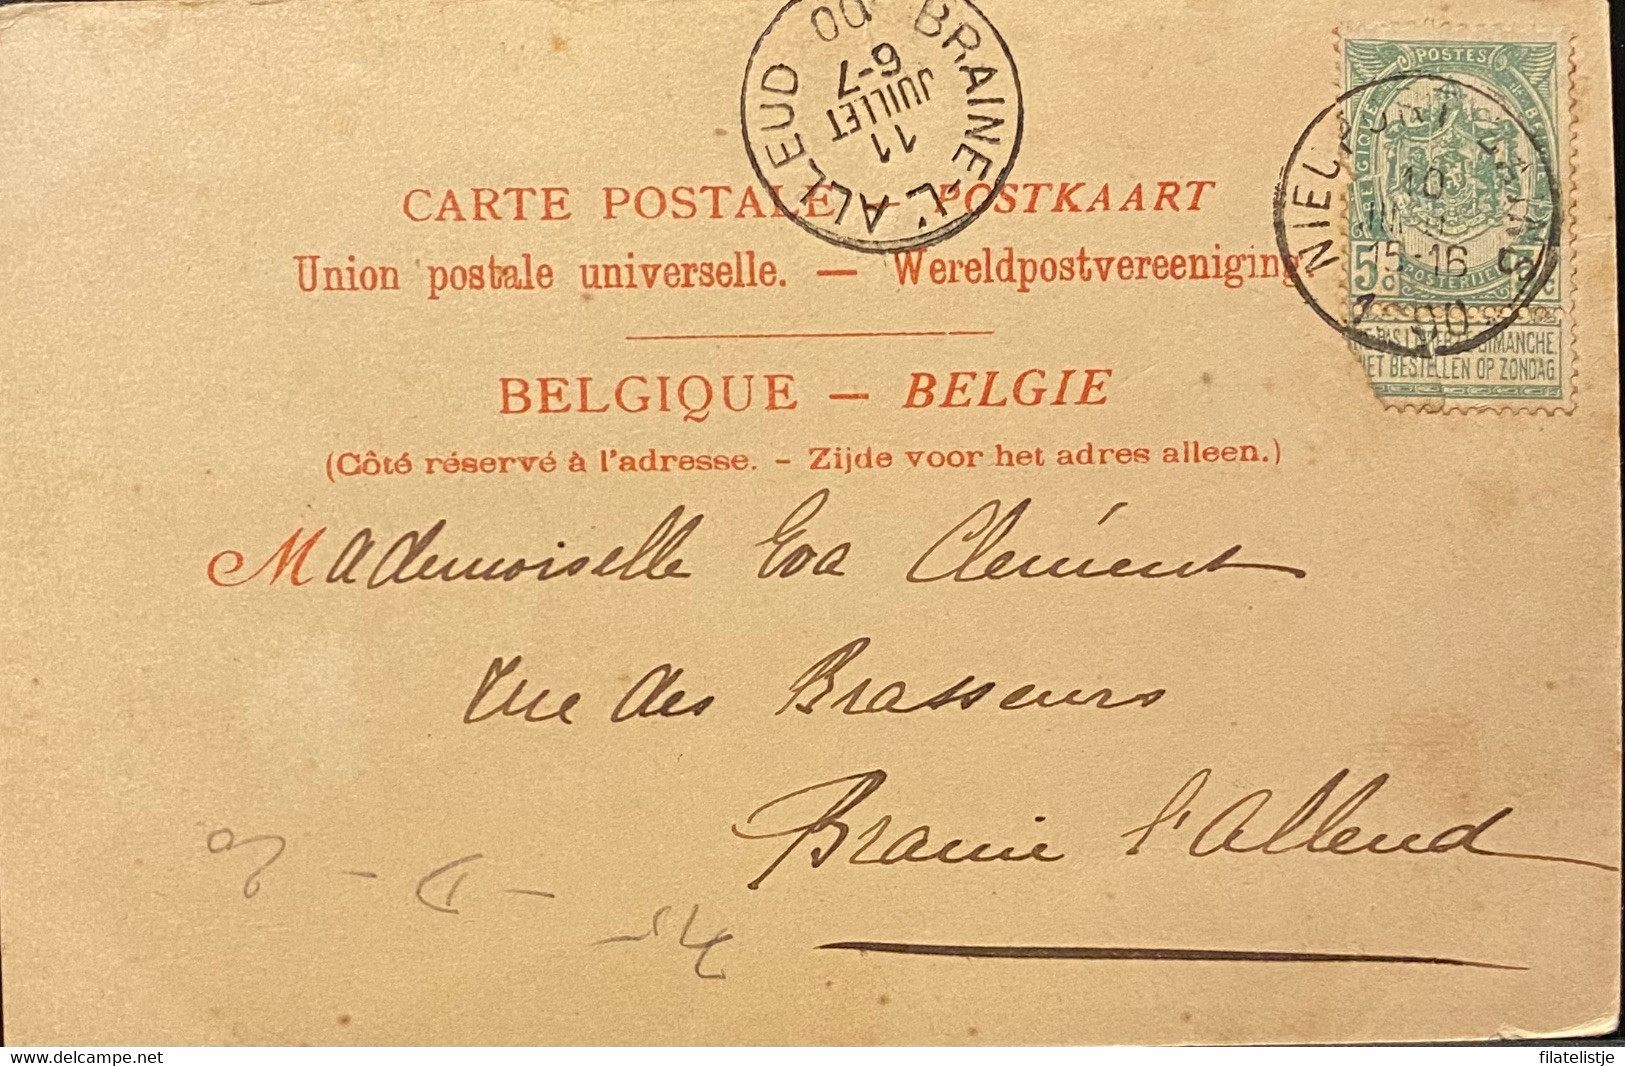 BRAINE-L'ALLEUD
11
JUILLET
6-7
00
POSTES
BELGIQUE
5c
POSTERIJEN
NE PAS LIVRER LE DIMANCHE
NIET BESTELLEN OP ZONDAG
10
15-16
00
CARTE POSTALE — POSTKAART
Union postale universelle. — Wereldpostvereeniging.
BELGIQUE — BELGIE
(Côté réservé à l'adresse. - Zijde voor het adres alleen.)
Mademoiselle Eva Clément
rue des Brasseurs
Braine l'Alleud
delcampe.net
filatelistje